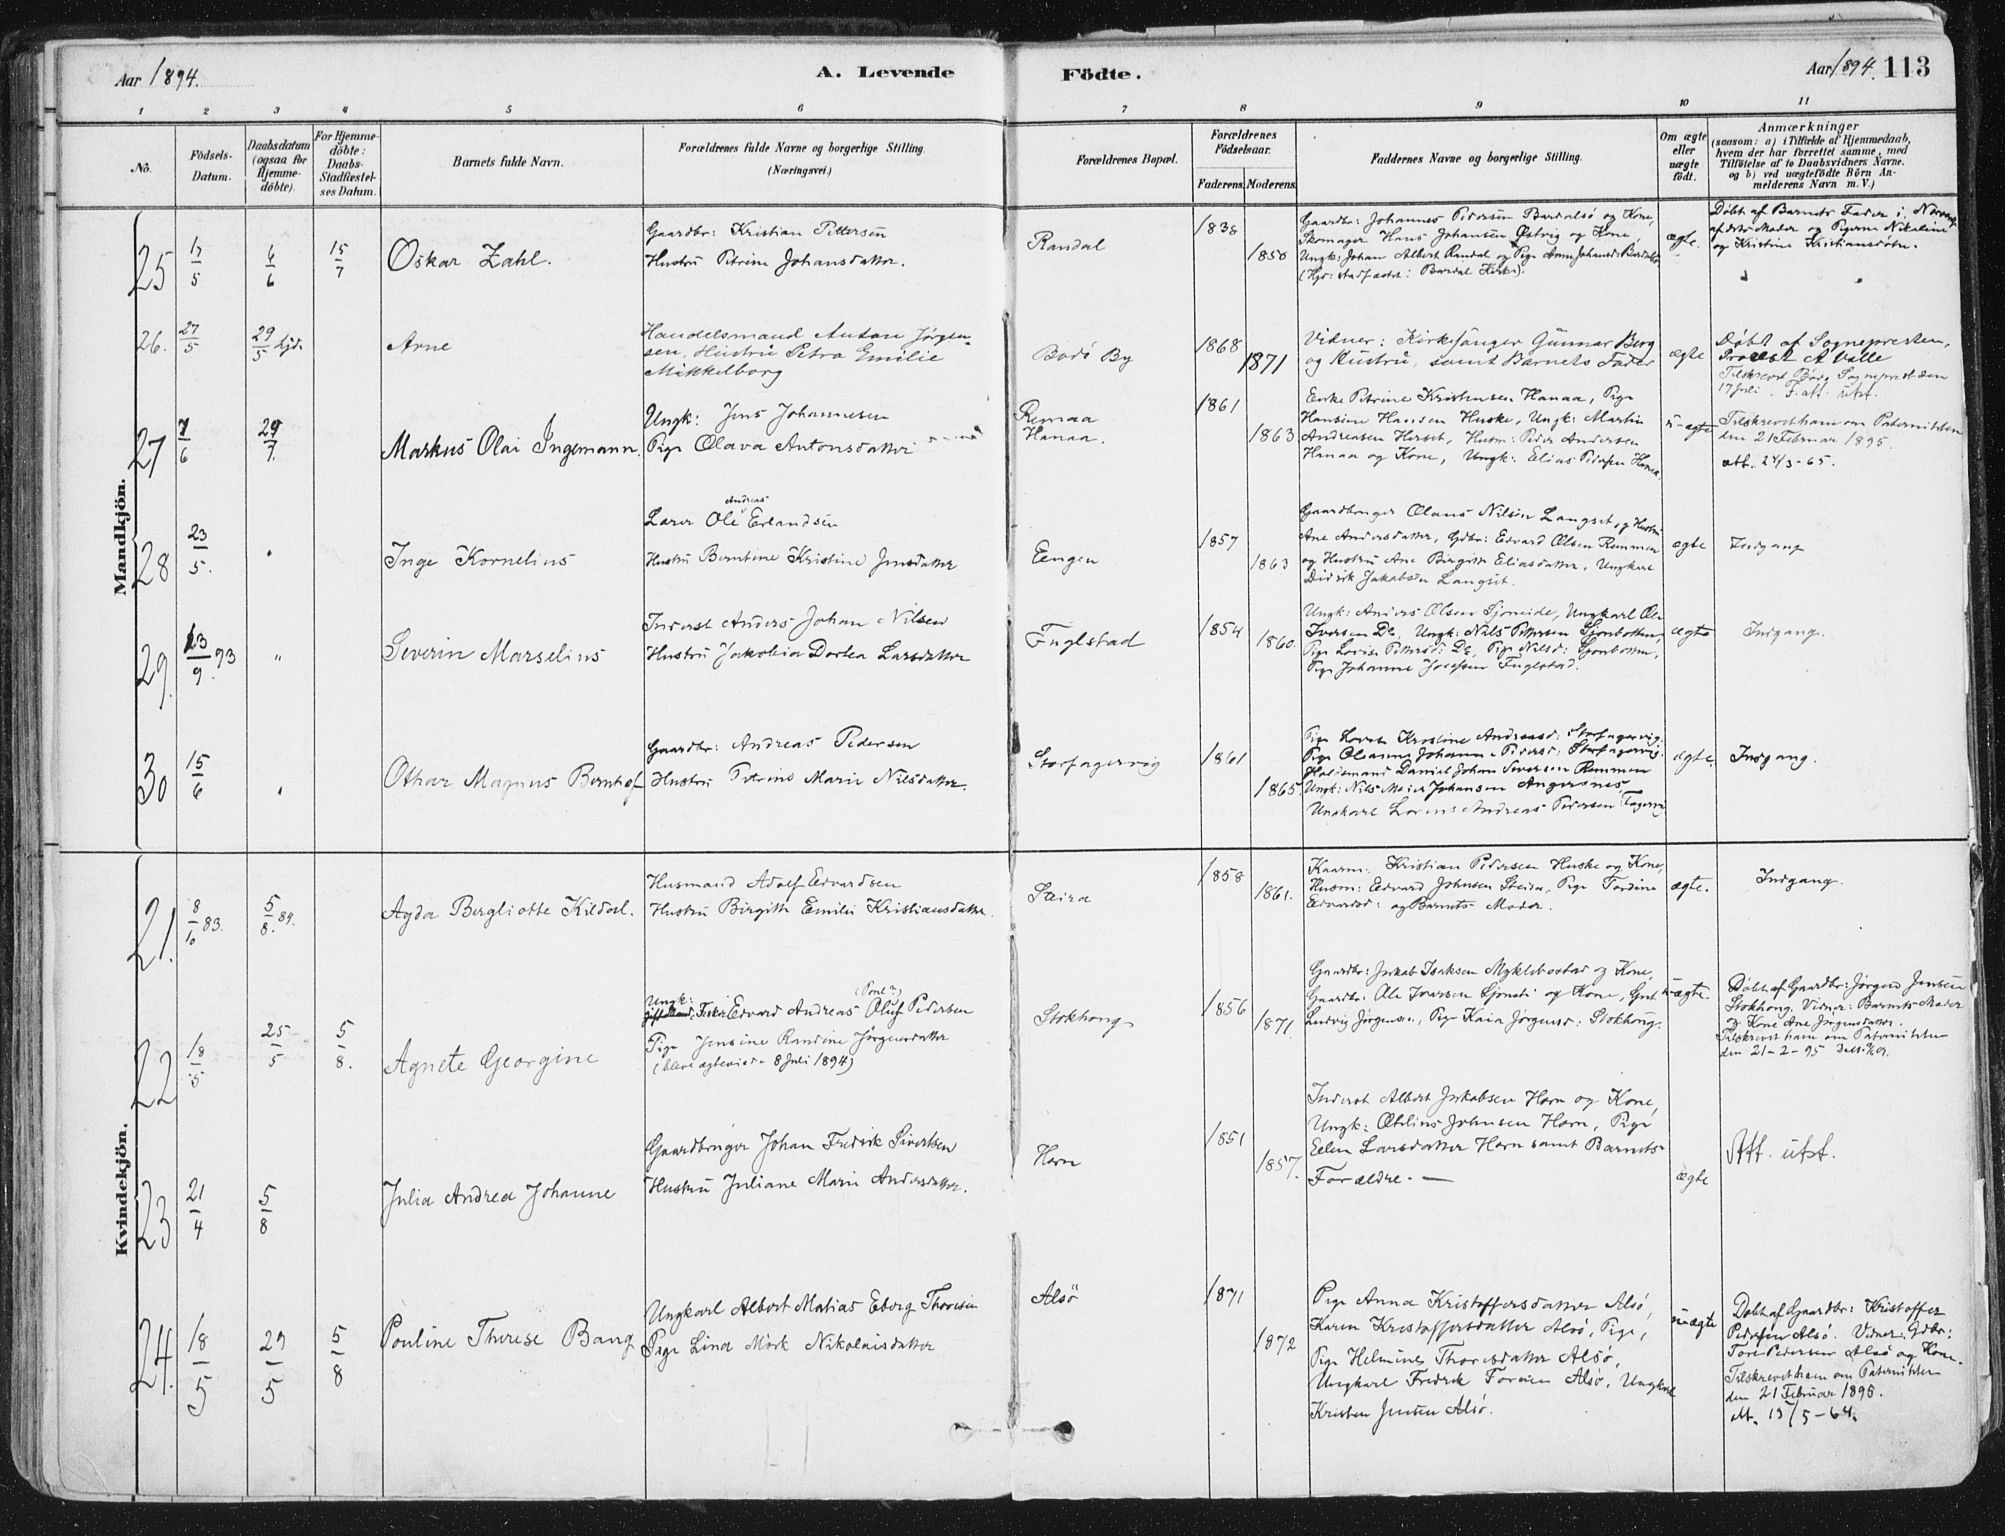 Aar 1894.
A. Levende
Födte.
Aar 1894. 113
1 2 3 4 5 6 7 8 9 10 11
No.
Födsels-
Datum.
Daabsdatum
(ogsaa for
Hjemme-
døbte).
For Hjemme-
döbte:
Daabs-
Stadfæstel-
ses Datum.
Barnets fulde Navn.
Forældrenes fulde Navne og borgerlige Stilling
(Næringsvei.)
Forældrenes Bopæl.
Forældrenes
Födselsaar.
Faderens. Moderens.
Faddernes Navne og borgerlige Stilling.
Om ægte
eller
uægte
født.
Anmærkninger
(saasom: a) i Tilfælde af Hjemmedaab,
hvem der har forrettet samme, med
Tilföielse af to Daabsvidners Navne.
og b) ved uægtefödte Börn An-
melderens Navn m. V.)
Mandkjön.
25
17/5
6/6
15/7
Oskar Zahl.
Gaardbr: Kristian Pettersen
Hustru Petrine Johansdatter.
Randal
1838
1850
Gaardbr: Johannes Pedersen Bardalsö og Kone,
Skomager Hans Johansen Østvig og Kone
Ungk: Johan Albert Randal og Pige Anne Johansd:
(Hjd: stadfæstet: Bardal Kirke).
ægte.
Døbt af Barnets Fader i Nærvær
af dets Moder og Pigerne Nikoline
og Kristine Kristiansdotre.
26.
27/5
29/5 hjd.
Arne
Handelsmand Anton Jörgen-
sen, Hustru Petra Emilie
Mikkelborg
Bodö By
1868
1871
Vidner: Kirkesanger Gunnar Berg
og Hustru, samt Barnets Fader
ægte
Döbt af Sognepresten,
Provst A Valle
Tilskrevet Sognepresten
17 Juli. F. att. utst.
27
7/6
29/7
Markus Olai Ingemann.
Ungk: Jens Johannesen
Pige Olava Antonsdatter
Remaa
Hanaa.
1861
1863
Enke Petrine Kristensen Hanaa, Pige
Hansine Hansen Huske, Ungk: Martin
Andreasen Herset, Husm: Peder Andersen
Hanaa og Kone, Ungk: Elias Pedersen Hanaa
u-ægte
Tilskrevet ham om Paterniteten
den 21 Februar 1895.
att. 24/3-65.
28
23/5.
Inge Kornelius
Andreas
Lærer Ole Erlandsen
Hustru Berntine Kristine Jensdatter
Eengen
1857
1863
Gaardbruger Olaus Nilsen Langset, og Hustru
Ane Andersdatter, Gdbr: Edvard Olsen Remmen
og Hustru Ane Birgitte Eliasdatter, Ungkarl
Didrik Jakobsen Langset.
ægte
Indgang
29.
23/9 93
"
Severin Marselius
Inderst Anders Johan Nilsen
Hustru Jakobia Dortea Larsdatter
Fuglstad
1854
1860.
Ungk: Anders Olsen Sjoneide, Ungkarl Ole
Iversen Do, Ungk: Nils Pettersen Sjonbotten,
Pige Lovise Pettersd: Do, Pige Nilsd: Sjonbotten,
Pige Johanne Josefsen Fuglstad.
ægte
Indgang.
30
15/6
Othar Magnus Bernhof
Gaardbr: Andreas Pedersen
Hustru Petrine Marie Nilsdatter.
Storfagervig
1861
1865.
Pige Kristine Andreasd: Storfagervig.
Pige Oleanna Johanne Pedersd: Storfagervig.
Daniel Johan Sivertsen Remmen
Ungk: Nils Meier Johansen Angersnes,
Ungkarl Lorens Andreas Pedersen Fagervig
ægte.
Indgang.
Kvindekjön.
21.
8/10 83.
5/8. 94.
Agda Bergliotte Kildal.
Husmand Adolf Edvardsen
Hustru Birgitte Emilie Kristiansdatter.
Seira
1858
1861.
Kaarm: Kristian Pedersen Huske og Kone,
Husm: Edvard Johnsen Steira, Pige Tordine
Edvardsd: og Barnets Moder.
ægte.
Indgang.
22
18/5
25/5
5/8.
Agnete Georgine
Ungk:
Edvard Andreas Oluf Pedersen
Pige Jensine Randine Jörgensdatter
(bleve ægteviede 8 Juli 1894)
Stokhong
1856
1871.
Gaardbr: Jakob Isaksen Myklebostad og Kone,
Gaardbr: Ole Ivarsen Sjonsti og Kone, Gut
Ludvig Jörgensen, Pige Kaia Jörgensd: Stokhong.
u-ægte.
Døbt af Gaardbr: Jørgen Jensen
Stokhong. Vidner: Barnets Moder
og Kone Ane Jörgensdatter.
Tilskrevet ham om Paterniteten
den 21-2-95
23
21/4
5/8
Julia Andrea Johanne
Gaardbruger Johan Fredrik Sivertsen
Hustru Juliane Marie Andersdatter.
Horn
1851
1857.
Inderst Albert Jakobsen Horn og Kone,
Ungk: Otelius Johnsen Horn, Pige
Eelen Larsdatter Horn samt Barnets
Forældre. —
ægte
Att. utst.
24.
18/5
29/5
5/8
Pouline Therese Bang
Ungkarl Albert Matias Eberg Thoresen
Pige Lina Mörk Nikolaisdatter
Alsö
1871
1872
Pige Anna Kristoffersdatter Alsö,
Karen Kristoffersdatter Alsö, Pige,
Pige Helmine Thoresdatter Alsö,
Ungkarl Fredrik Toresen Alsö, Ungkarl
Kristen Jensen Alsö.
u-ægte
Døbt af Gaardbr: Kristoffer
Pedersen Alsö. Vidner: Gdbr:
Tore Pedersen Alsö og Kone.
Tilskrevet ham om Paterniteten
den 21 Februar 1895.
att. 13/5-64.